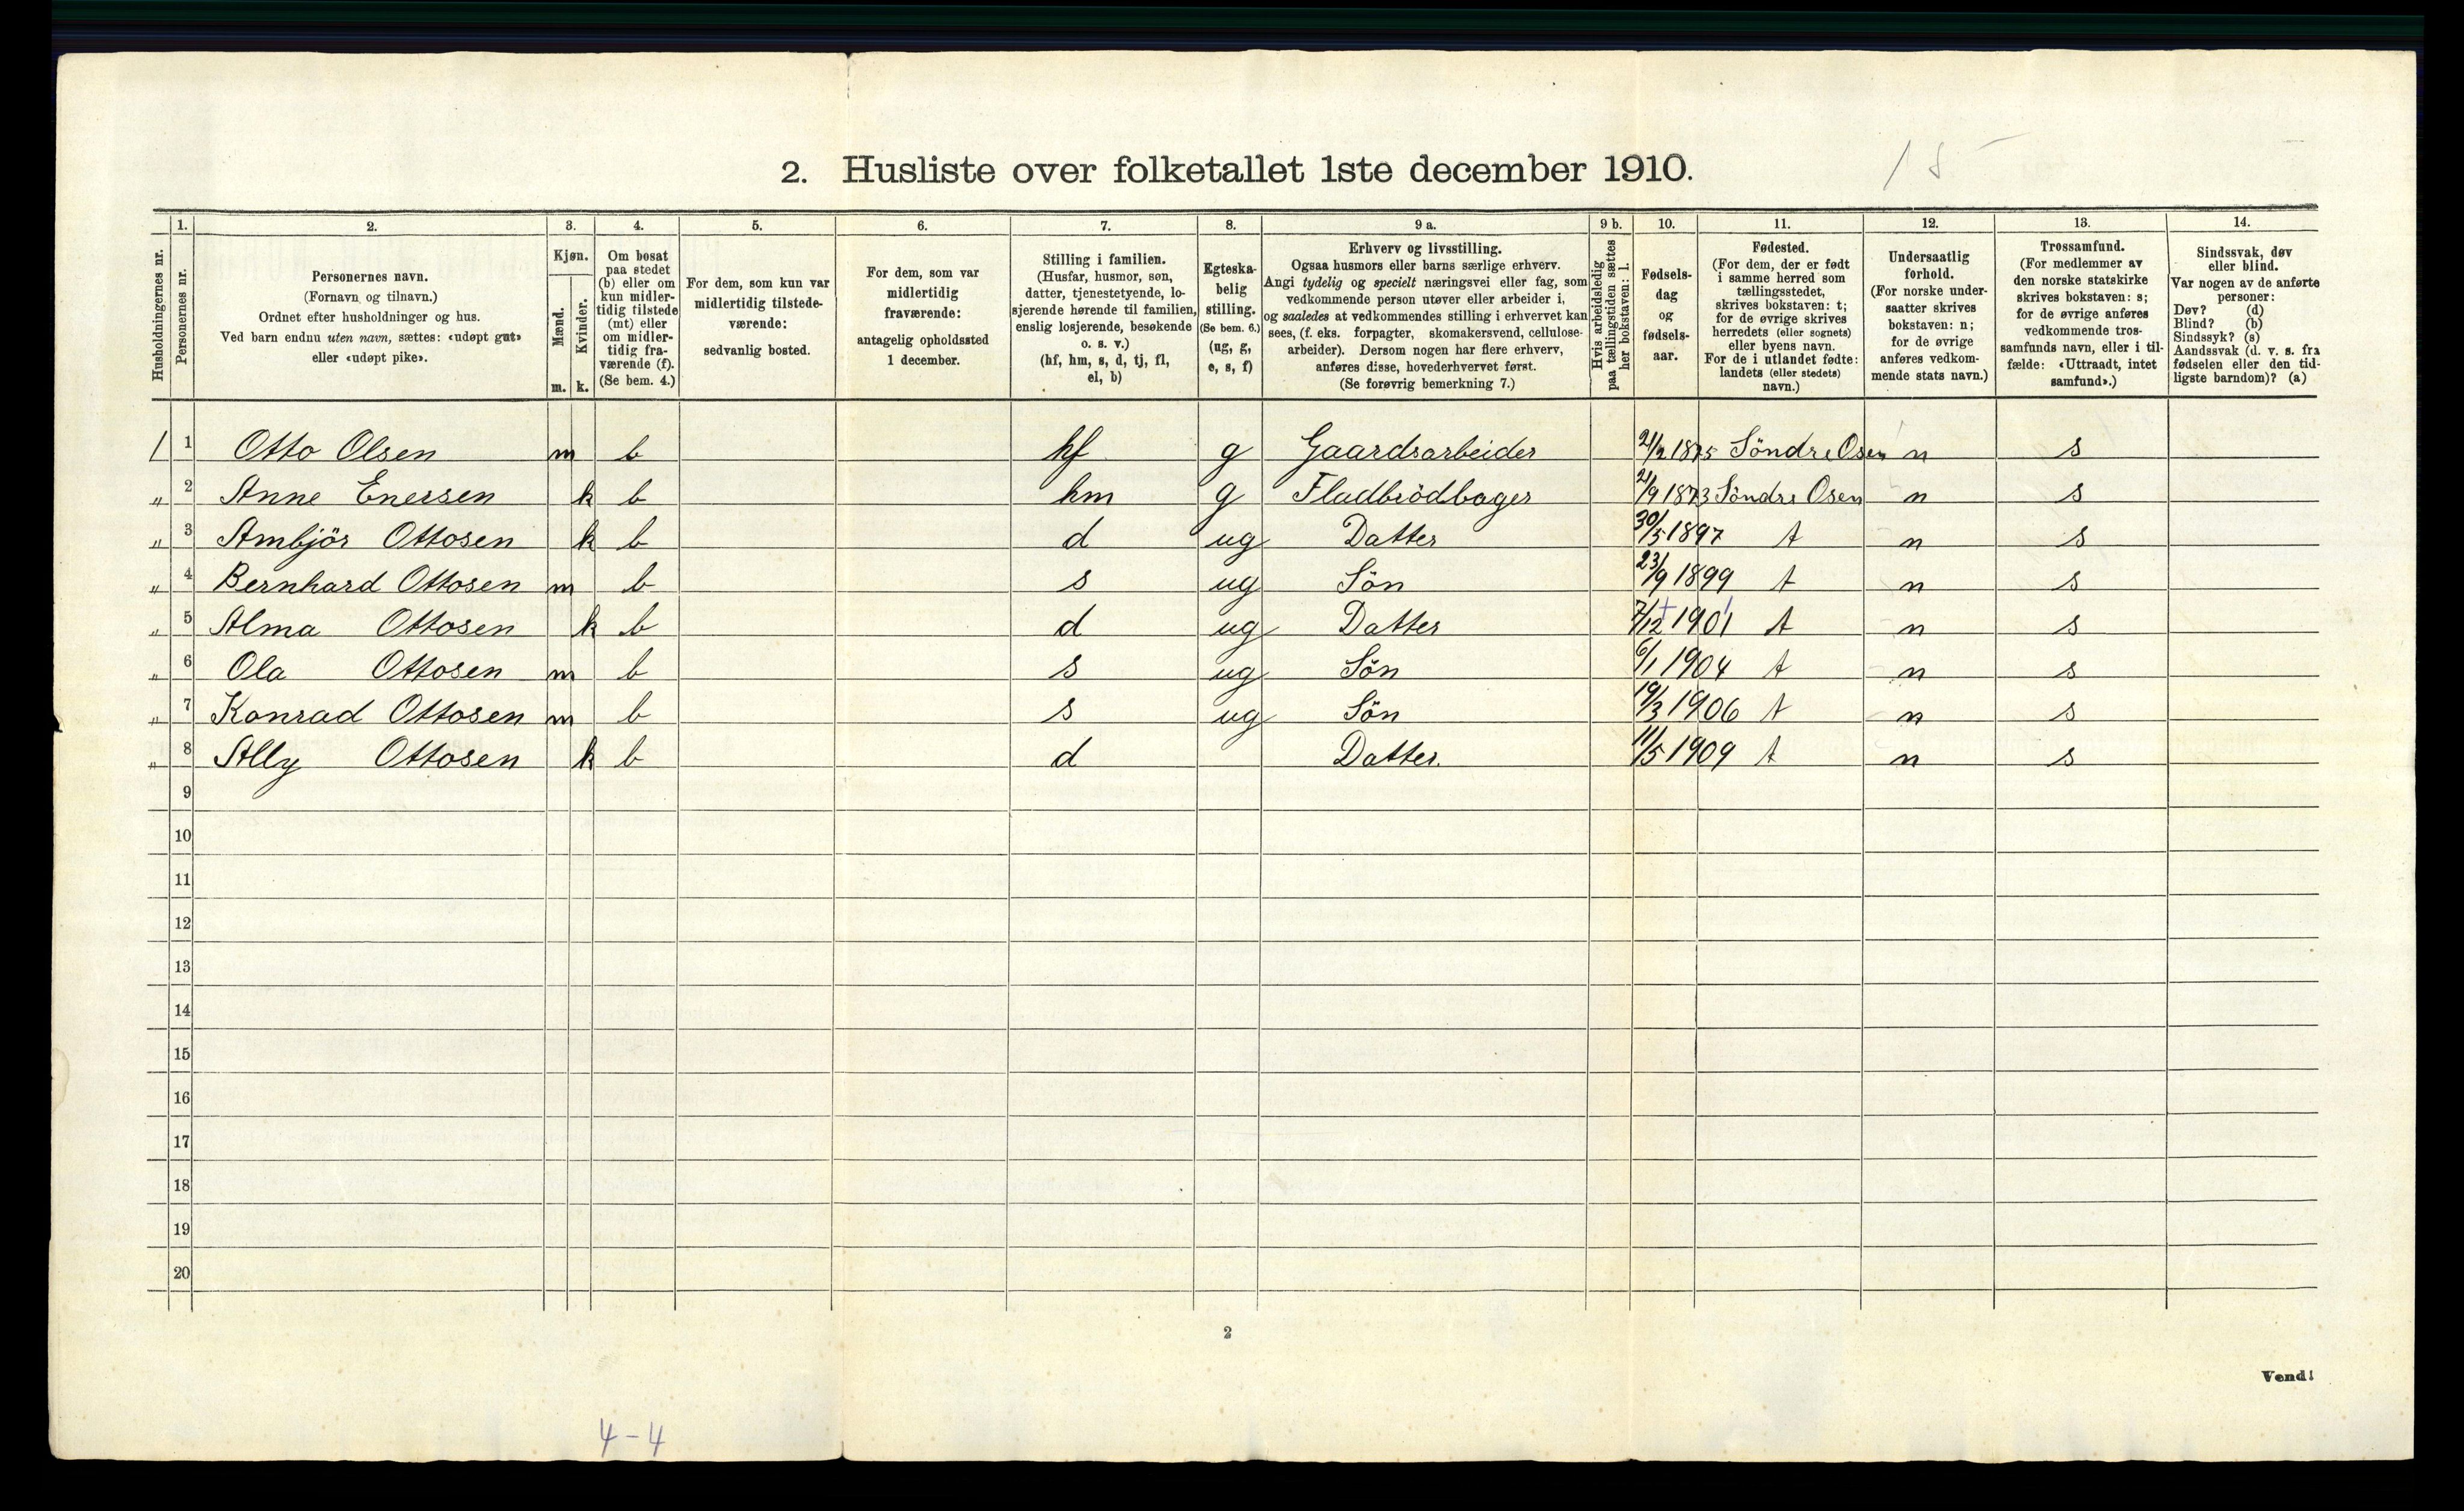 15
2. Husliste over folketallet 1ste december 1910.
Husholdningernes nr.
1. Personernes nr.
2. Personernes navn.
(Fornavn og tilnavn.)
Ordnet efter husholdninger og hus.
Ved barn endnu uten navn, sættes: «udøpt gut»
eller «udøpt pike».
3. Kjøn.
Mænd. m.
Kvinder. k.
4. Om bosat
paa stedet
(b) eller om
kun midler-
tidig tilstede
(mt) eller
om midler-
tidig fra-
værende (f).
(Se bem. 4.)
5. For dem, som kun var
midlertidig tilstede-
værende:
sedvanlig bosted.
6. For dem, som var
midlertidig
fraværende:
antagelig opholdssted
1 december.
7. Stilling i familien.
(Husfar, husmor, søn,
datter, tjenestetyende, lo-
sjerende hørende til familien,
enslig losjerende, besøkende
o. s. v.)
(hf, hm, s, d, tj, fl,
el, b)
8. Egteska-
belig
stilling.
(Se bem. 6.)
(ug, g,
e, s, f)
9 a. Erhverv og livsstilling.
Ogsaa husmors eller barns særlige erhverv.
Angi tydelig og specielt næringsvei eller fag, som
vedkommende person utøver eller arbeider i,
og saaledes at vedkommendes stilling i erhvervet kan
sees, (f. eks. forpagter, skomakersvend, cellulose-
arbeider). Dersom nogen har flere erhverv,
anføres disse, hovederhvervet først.
(Se forøvrig bemerkning 7.)
9 b. Hvis arbeidsledig
paa tællingstiden sættes
her bokstaven: l.
10. Fødsels-
dag
og
fødsels-
aar.
11. Fødested.
(For dem, der er født
i samme herred som
tællingsstedet,
skrives bokstaven: t;
for de øvrige skrives
herredets (eller sognets)
eller byens navn.
For de i utlandet fødte:
landets (eller stedets)
navn.)
12. Undersaatlig
forhold.
(For norske under-
saatter skrives
bokstaven: n;
for de øvrige
anføres vedkom-
mende stats navn.)
13. Trossamfund.
(For medlemmer av
den norske statskirke
skrives bokstaven: s;
for de øvrige anføres
vedkommende tros-
samfunds navn, eller i til-
fælde: «Uttraadt, intet
samfund».)
14. Sindssvak, døv
eller blind.
Var nogen av de anførte
personer:
Døv? (d)
Blind? (b)
Sindssyk? (s)
Aandssvak (d. v. s. fra
fødselen eller den tid-
ligste barndom)? (a)
1 1 Otto Olsen m b hf g Gaardsarbeider 21/2 1875 Söndre Osen n s
„ 2 Anne Enersen k b hm g Fladbrödbager 21/9 1873 Söndre Osen n s
„ 3 Ambjör Ottosen k b d ug Datter 30/5 1897 t n s
„ 4 Bernhard Ottosen m b s ug Sön 23/9 1899 t n s
„ 5 Alma Ottosen k b d ug Datter 7/12 1901 t n s
„ 6 Ola Ottosen m b s ug Sön 6/1 1904 t n s
„ 7 Konrad Ottosen m b s ug Sön 19/3 1906 t n s
„ 8 Ally Ottosen k b d Datter. 11/5 1909 t n s
9
10
11
12
13
14
15
16
17
18
19
20
2
Vend!
4-4